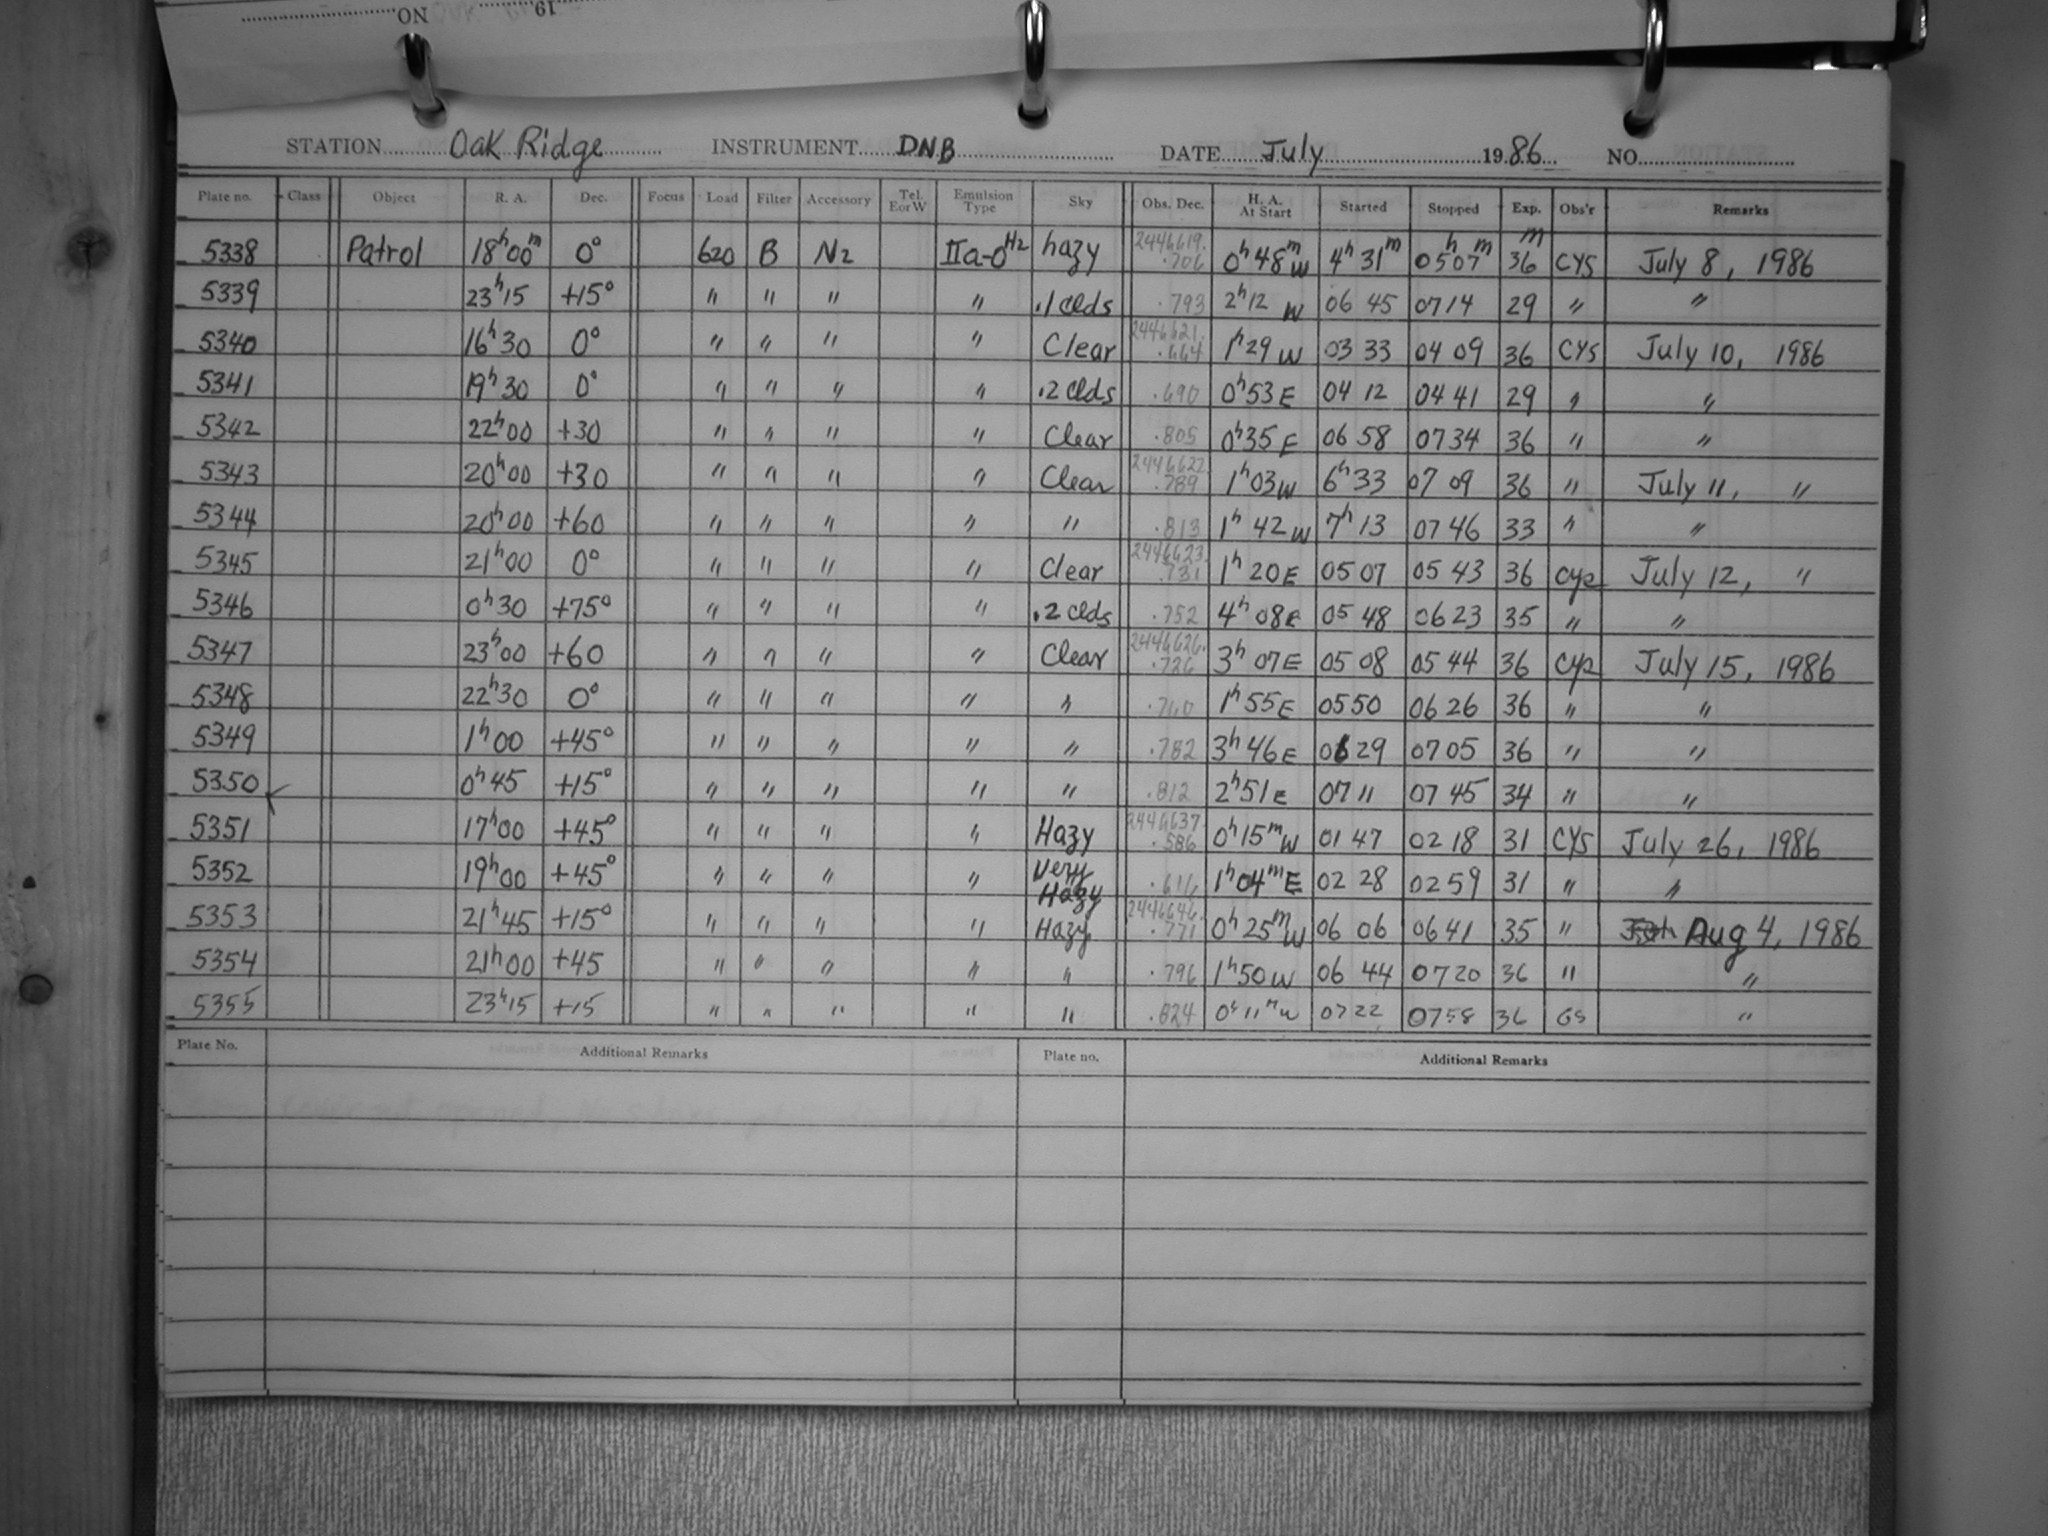 NO. 19
STATION Oak Ridge INSTRUMENT DNB DATE July 1986 NO.
Plate no. Class Object R. A. Dec. Focus Load Filter Accessory Tel. E or W Emulsion Type Sky Obs. Dec. H. A. At Start Started Stopped Exp. Obs'r Remarks
5338 Patrol 18h00m 0° 620 B N2 IIa-O H2 hazy 2446619.706 0h48m W 4h31m 05h07m 36m CYS July 8, 1986
5339 23h15 +15° " " " " .1 clds .793 2h12 W 06 45 0714 29 " "
5340 16h30 0° " " " " Clear 2446621.664 1h29 W 03 33 04 09 36 CYS July 10, 1986
5341 19h30 0° " " " " .2 clds .690 0h53 E 04 12 04 41 29 " "
5342 22h00 +30 " " " " Clear .805 0h35 E 06 58 0734 36 " "
5343 20h00 +30 " " " " Clear 2446622.789 1h03 W 6h33 07 09 36 " July 11, "
5344 20h00 +60 " " " " " .813 1h 42 W 7h 13 07 46 33 " "
5345 21h00 0° " " " " Clear 2446623.731 1h 20 E 05 07 05 43 36 July 12, "
5346 0h30 +75° " " " " .2 clds .752 4h 08 E 05 48 06 23 35 " "
5347 23h00 +60 " " " " Clear 2446626.726 3h 07 E 05 08 05 44 36 July 15, 1986
5348 22h30 0° " " " " " .760 1h 55 E 05 50 06 26 36 " "
5349 1h00 +45° " " " " " .782 3h 46 E 06 29 07 05 36 " "
5350 0h45 +15° " " " " " .812 2h51 E 07 11 07 45 34 " "
5351 17h00 +45° " " " " Hazy 2446637.586 0h15m W 01 47 02 18 31 CYS July 26, 1986
5352 19h00 +45° " " " " Very Hazy .616 1h04m E 02 28 02 59 31 " "
5353 21h45 +15° " " " " Hazy 2446646.771 0h25m W 06 06 06 41 35 " Aug 4, 1986
5354 21h00 +45 " " " " " .796 1h50 W 06 44 0720 36 " "
5355 23h15 +15 " " " " " .824 0h11m W 0722 0758 36 GS "
Plate No. Additional Remarks Plate no. Additional Remarks